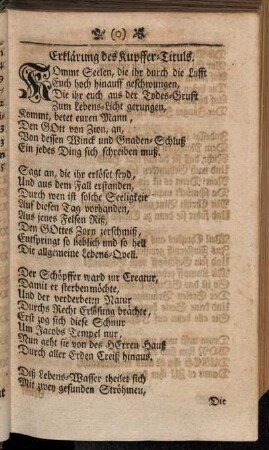 (o)
Erklärung des Kupffer-Tituls.
KOmmt Seelen, die ihr durch die Lufft
Euch hoch hinauff geschwungen,
Die ihr euch aus der Todes-Grufft
Zum Lebens-Licht gerungen,
Kommt, betet euren Mann,
Den GOtt von Zion, an,
Von dessen Winck und Gnaden-Schluß
Ein jedes Ding sich schreiben muß.
Sagt an, die ihr erlöset seyd,
Und aus dem Fall erstanden,
Durch wen ist solche Seeligkeit
Auf diesen Tag vorhanden,
Aus jenes Felsen Ritz,
Den GOttes Zorn zerschmiß,
Entspringt so lieblich und so hell
Die allgemeine Lebens-Quell.
Der Schöpffer ward zur Creatur,
Damit er sterben möchte,
Und der verderbten Natur
Durchs Recht Erlösung brächte,
Erst zog sich diese Schnur
Um Jacobs Tempel nur,
Nun geht sie von des HErren Hauß
Durch aller Erden Creiß hinaus.
Diß Lebens-Wasser theilet sich
Mit zwey gesunden Ströhmen,
Die